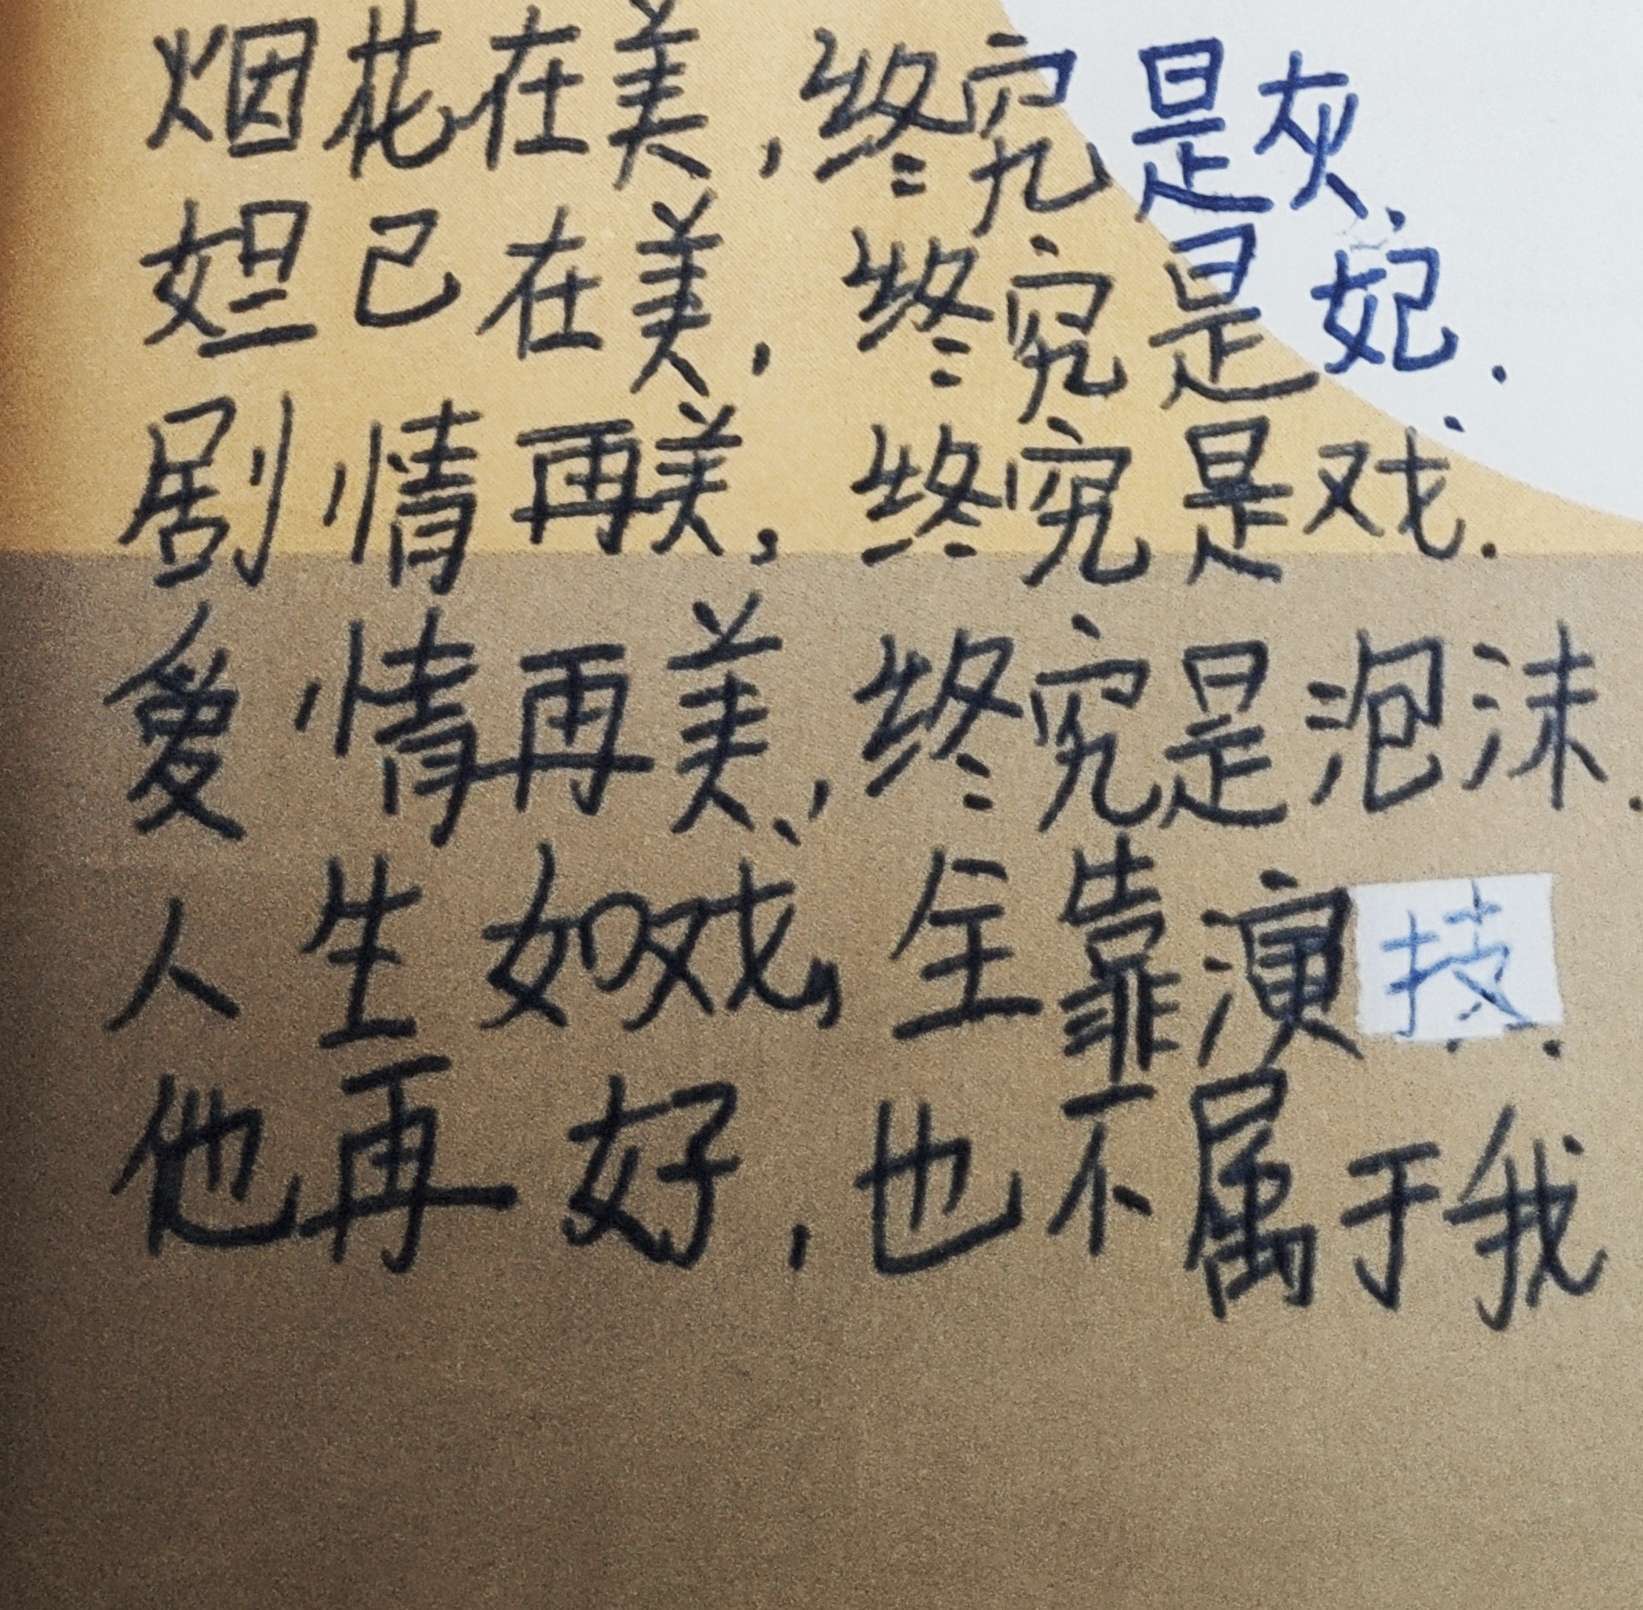 烟花在美，终究是灰.
妲己在美，终究是妃.
剧情再美，终究是戏.
爱情再美，终究是泡沫.
人生如戏，全靠演技.
他再好，也不属于我